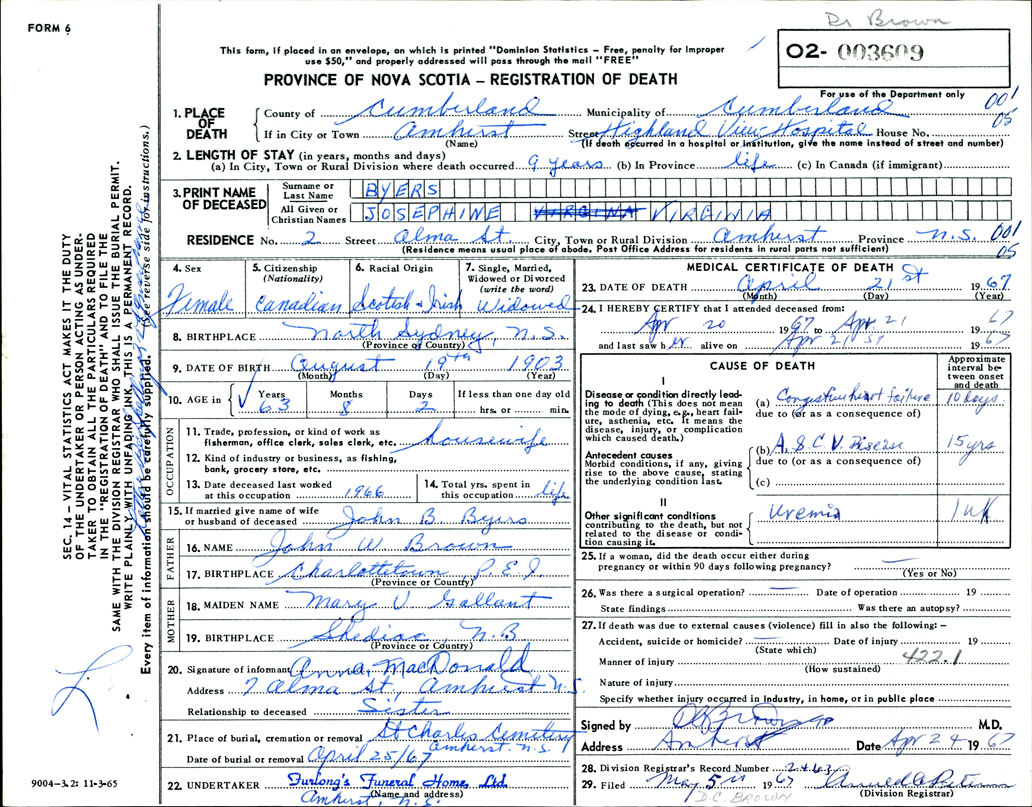 Dr Brown
FORM 6
This form, if placed in an envelope, on which is printed "Dominion Statistics – Free, penalty for improper
use $50," and properly addressed will pass through the mail "FREE"
O2- 003609
PROVINCE OF NOVA SCOTIA – REGISTRATION OF DEATH
For use of the Department only
001
05
1. PLACE OF DEATH
County of Cumberland Municipality of Cumberland
If in City or Town Amherst Street Highland View Hospital House No.
(Name) (If death occurred in a hospital or institution, give the name instead of street and number)
2. LENGTH OF STAY (in years, months and days)
(a) In City, Town or Rural Division where death occurred 9 years (b) In Province life (c) In Canada (if immigrant)
3. PRINT NAME OF DECEASED
Surname or Last Name BYERS
All Given or Christian Names JOSEPHINE VIRGINIA VIRGINIA
RESIDENCE No. 2 Street Alma St. City, Town or Rural Division Amherst Province N.S. 001
(Residence means usual place of abode. Post Office Address for residents in rural parts not sufficient) 05
4. Sex Female
5. Citizenship (Nationality) Canadian
6. Racial Origin Scotish & Irish
7. Single, Married, Widowed or Divorced (write the word) Widowed
8. BIRTHPLACE North Sydney, N.S.
(Province or Country)
9. DATE OF BIRTH August 19th 1903
(Month) (Day) (Year)
10. AGE in Years 63 Months 8 Days 2 If less than one day old hrs. or min.
OCCUPATION
11. Trade, profession, or kind of work as fisherman, office clerk, sales clerk, etc. housewife
12. Kind of industry or business, as fishing, bank, grocery store, etc.
13. Date deceased last worked at this occupation 1966
14. Total yrs. spent in this occupation life
15. If married give name of wife or husband of deceased John B. Byers
FATHER
16. NAME John W. Brown
17. BIRTHPLACE Charlottetown, P.E.I.
(Province or Country)
MOTHER
18. MAIDEN NAME Mary V Gallant
19. BIRTHPLACE Shediac, N.B
(Province or Country)
20. Signature of informant Anna MacDonald
Address 7 Alma St, Amherst N.S.
Relationship to deceased Sister
21. Place of burial, cremation or removal St Charles Cemetery
Amherst. N.S.
Date of burial or removal April 25/67
22. UNDERTAKER Furlong's Funeral Home, Ltd.
(Name and address)
Amherst, N.S.
MEDICAL CERTIFICATE OF DEATH
23. DATE OF DEATH April 21st 1967
(Month) (Day) (Year)
24. I HEREBY CERTIFY that I attended deceased from:
Apr 20 1967 to Apr 21 67
and last saw her alive on Apr 21st 1967
CAUSE OF DEATH
Approximate interval between onset and death
I
Disease or condition directly leading to death (This does not mean the mode of dying, e.g., heart failure, asthenia, etc. It means the disease, injury, or complication which caused death.)
(a) Congestive heart failure 10 days.
due to (or as a consequence of)
Antecedent causes
Morbid conditions, if any, giving rise to the above cause, stating the underlying condition last.
(b) A.S.C.V. Disease 15 yrs
due to (or as a consequence of)
(c)
II
Other significant conditions contributing to the death, but not related to the disease or condition causing it.
Uremia 1 wk
25. If a woman, did the death occur either during pregnancy or within 90 days following pregnancy? —
(Yes or No)
26. Was there a surgical operation? — Date of operation 19
State findings Was there an autopsy?
27. If death was due to external causes (violence) fill in also the following: –
Accident, suicide or homicide? — Date of injury 19
(State which)
422.1
Manner of injury
(How sustained)
Nature of injury
Specify whether injury occurred in Industry, in home, or in public place
Signed by M.D.
Address Amherst Date Apr 24 1967
28. Division Registrar's Record Number 2463
29. Filed May 5th 1967
(Division Registrar)
D.C. BROWN
SEC. 14 – VITAL STATISTICS ACT MAKES IT THE DUTY
OF THE UNDERTAKER OR PERSON ACTING AS UNDER-
TAKER TO OBTAIN ALL THE PARTICULARS REQUIRED
IN THE "REGISTRATION OF DEATH" AND TO FILE THE
SAME WITH THE DIVISION REGISTRAR WHO SHALL ISSUE THE BURIAL PERMIT.
WRITE PLAINLY WITH UNFADING INK. THIS IS A PERMANENT RECORD.
Every item of information should be carefully supplied. (See reverse side for instructions.)
9004–3.2: 11-3-65